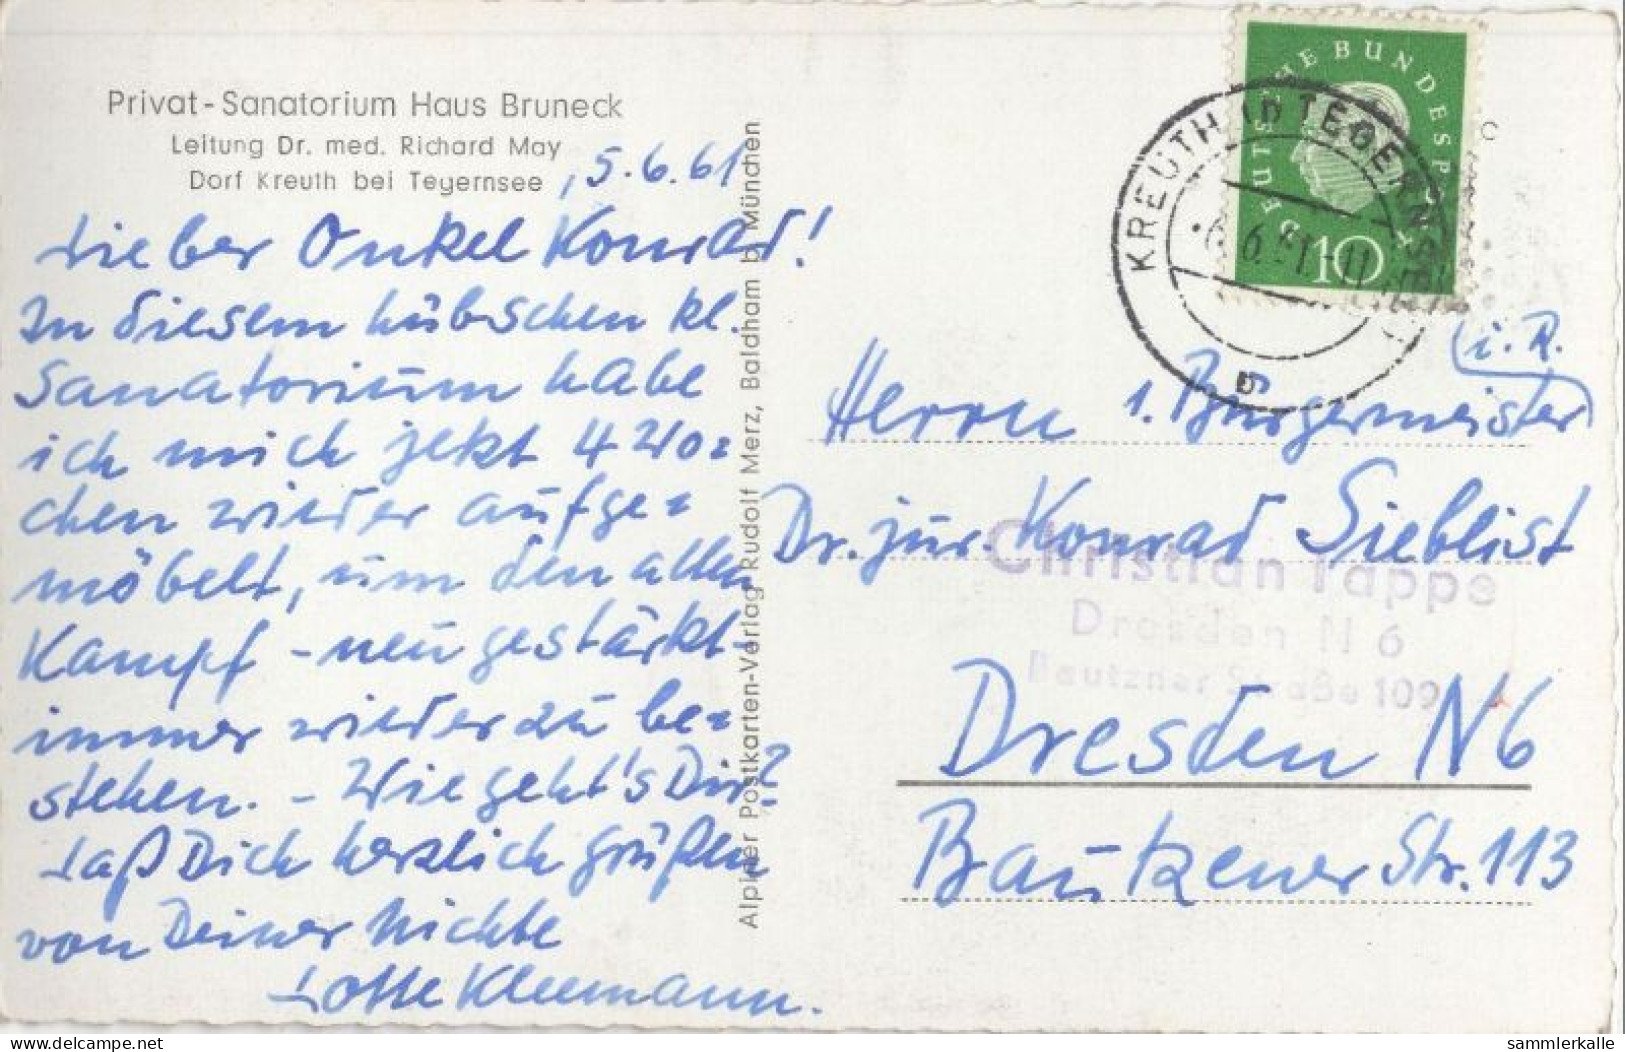 Privat-Sanatorium Haus Bruneck
Leitung Dr. med. Richard May
Dorf Kreuth bei Tegernsee
, 5.6.61
Lieber Onkel Konrad!
In diesem hübschen kl.
Sanatorium habe
ich mich jetzt 4 Wo=
chen wieder aufge=
möbelt, um den alten
Kampf - neu gestärkt -
immer wieder zu be=
stehen. - Wie geht's Dir?
Laß Dich herzlich grüßen
von Deiner Nichte
Lotte Kleemann.
Alpiner Postkarten-Verlag Rudolf Merz, Baldham b. München
DEUTSCHE BUNDESPOST
10
KREUTH (TEGERNSEE)
b
i. R.
Herrn 1. Bürgermeister
Dr. jur. Konrad Sieblist
Dresden N6
Bautzener Str. 113
Christian Pappe
Dresden N 6
Bautzner Straße 109
www.delcampe.net
sammlerkalle